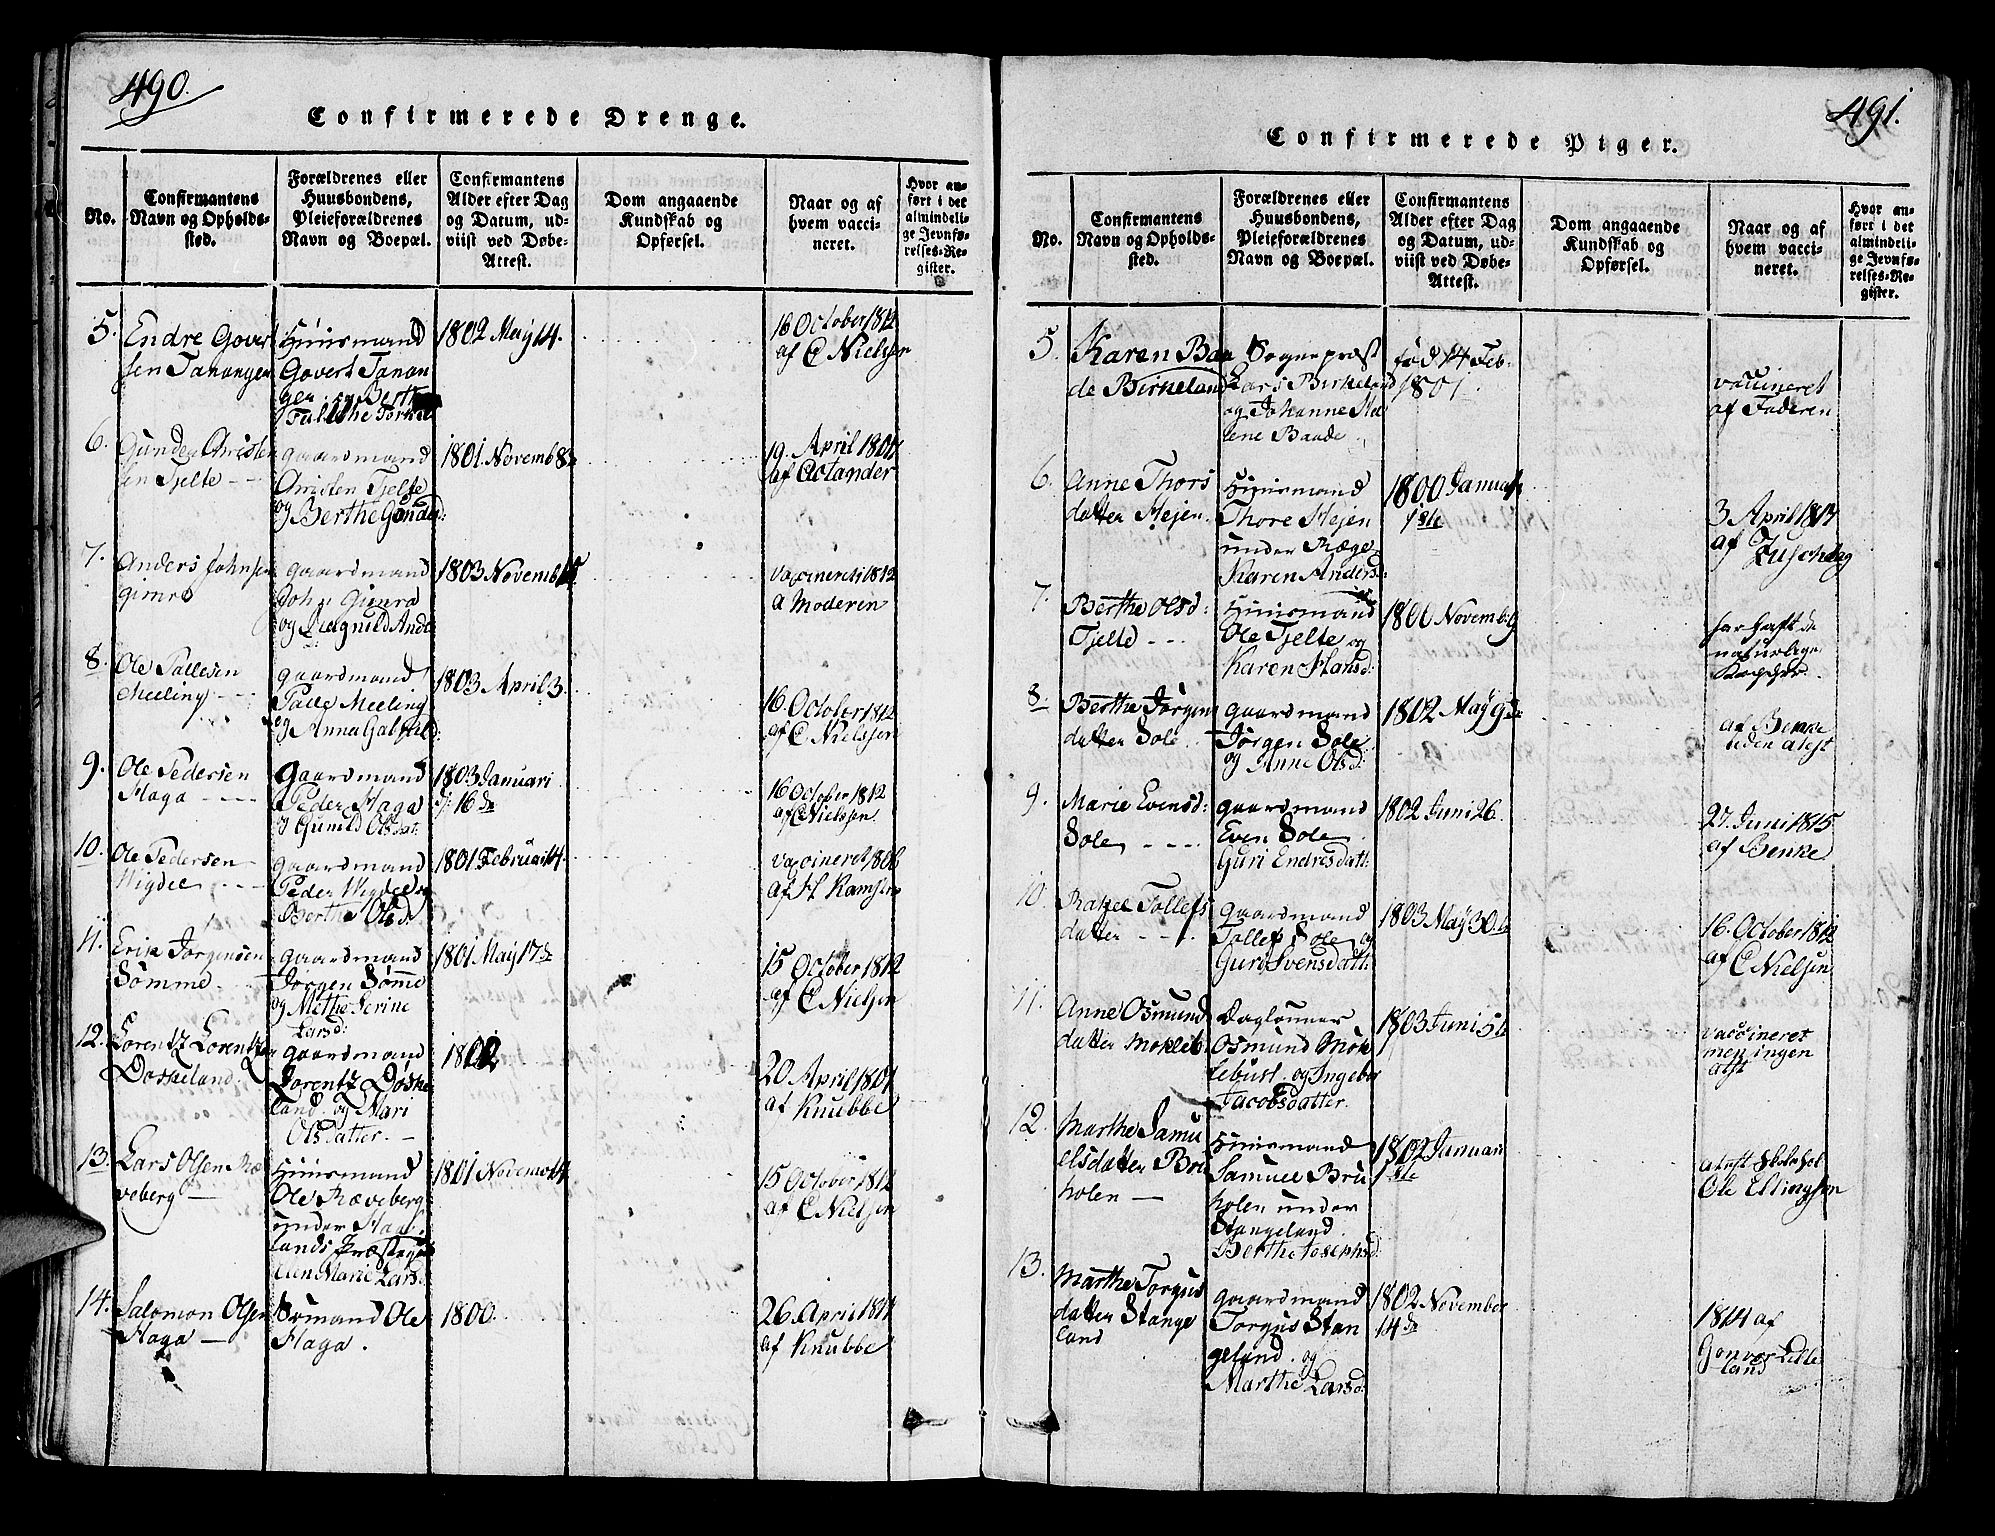 490.
Confirmerede Drenge.
No.
Confirmantens
Navn og Opholds-
sted.
Forældrenes eller
Huusbondens,
Pleieforældrenes
Navn og Boepæl.
Confirmantens
Alder efter Dag
og Datum, ud-
viist ved Døbe-
Attest.
Dom angaaende
Kundskab og
Opførsel.
Naar og af
hvem vacci-
neret.
Hvor an-
ført i det
almindeli-
ge Jevnfø-
relses-Re-
gister.
5.
Endre Govert
sen Tananger
Huusmand
Govert Tanan
ger og Berthe
1802 May 14.
16 October 1812
af C Nielsen
6.
Gunder Christen
sen Tjelte
gaardmand
Christen Tjelte
og Berthe Gunder
1801 Novemb 8
19. April 1801
af Astander
7.
Anders Johnsen
Gimre
gaardmand
John Gimra
og Ragnild Ande
1803 Novemb 15
vaxineret 1812
a Moderen
8.
Ole Pallesen
Meeling
gaardmand
Palle Meeling
og Anna Gabriels
1803 April 3.
16 October 1812
af C Nielssen
9.
Ole Pedersen
Haga
gaardmand
Peder Haga
og Gunild Olsdat:
1803 Januari
d: 16 de
16 October 1812
af C Nielsen
10.
Ole Pedersen
Wigdel
gaardmand
Peder Wigdel og
Berthe Olsd:
1801 Februar 14.
vaxineret 1806
af H Ramsen
11.
Erik Jørgensen
Sømme
gaardmand
Jørgen Sømme
og Methe Serine
Larsd:
1801 May 17 de
15 October 1812
af C Nielsen
12.
Lorentz Lorentzen
Dosseland
gaardmand
Lorentz Døske
land og Mari
Olsdatter.
1802
20 April 1801
af Knubbe
13.
Lars Olsen Ræ
veberg
Huusmand
Ole Ræveberg
under Haa
lands Præstega
Elen Marie Lars:
1801 Novemb 14
15 October 1812
af C Nielsen
14.
Salomon Olsen
Haga
Ole
Haga.
1800.
26 April 1814
af Knubbe
491.
Confirmerede Piger.
No.
Confirmantens
Navn og Opholds-
sted.
Forældrenes eller
Huusbondens,
Pleieforældrenes
Navn og Boepæl.
Confirmantens
Alder efter Dag
og Datum, ud-
viist ved Døbe-
Attest.
Dom angaaende
Kundskab og
Opførsel.
Naar og af
hvem vacci-
neret.
Hvor an-
ført i det
almindeli-
ge Jevnfø-
relses-Re-
gister.
5.
Karen Baa
de Birkeland
Sognepræst
Lars Birkeland
og Johanne Ma
lene Baade.
fød 14 Feb.
1801.
vaccineret
af Faderen
6.
Anne Thors
datter Hejen
Huusmand
Thore Hejen
under Ræge
Karen Anders:
1800 Januar
1ste
3 April 1817
af Zuschlag
7.
Berthe Olsd:
Tjelte
Huusmand
Ole Tjelte og
Karen Hansd:
1800 Novemb 9
har haft de
naturlige
Kopper.
8.
Berthe Jørgens
datter Sole
gaardmand
Jørgen Sole
og Anne Olsd:
1802 May 9 de
af Benke
uden atest
9.
Marie Evensd:
Sole
gaardmand
Even Sole
Guri Endresdatt:
1802 Juni 26.
27 Juni 1815
af Benke
10.
Rakel Tollefs
datter
gaardmand
Tollef Sole og
Guri Svensdatt:
1803 May 30.
16. October 1812
af C Nielsen
11.
Anne Osmund
datter Mokleb
Daglønner
Osmund Møk
lebust og Ingebor
Jacobsdatter.
1803 Juni 5
vaccineret
men ingen
atest
12.
Marthe Samu
elsdatter Bru
holen
Huusmand
Samuel Bru
holen under
Stangeland
Berthe Josephsd:
1802 Januari
1ste
atest Skolehol
Ole Ellingsen
13.
Marthe Torgus
datter Stange
land
gaardmand
Torgus Stan
geland og
Marthe Larsd:
1802 November
14 de
1814 af
Gonvor Lille
land